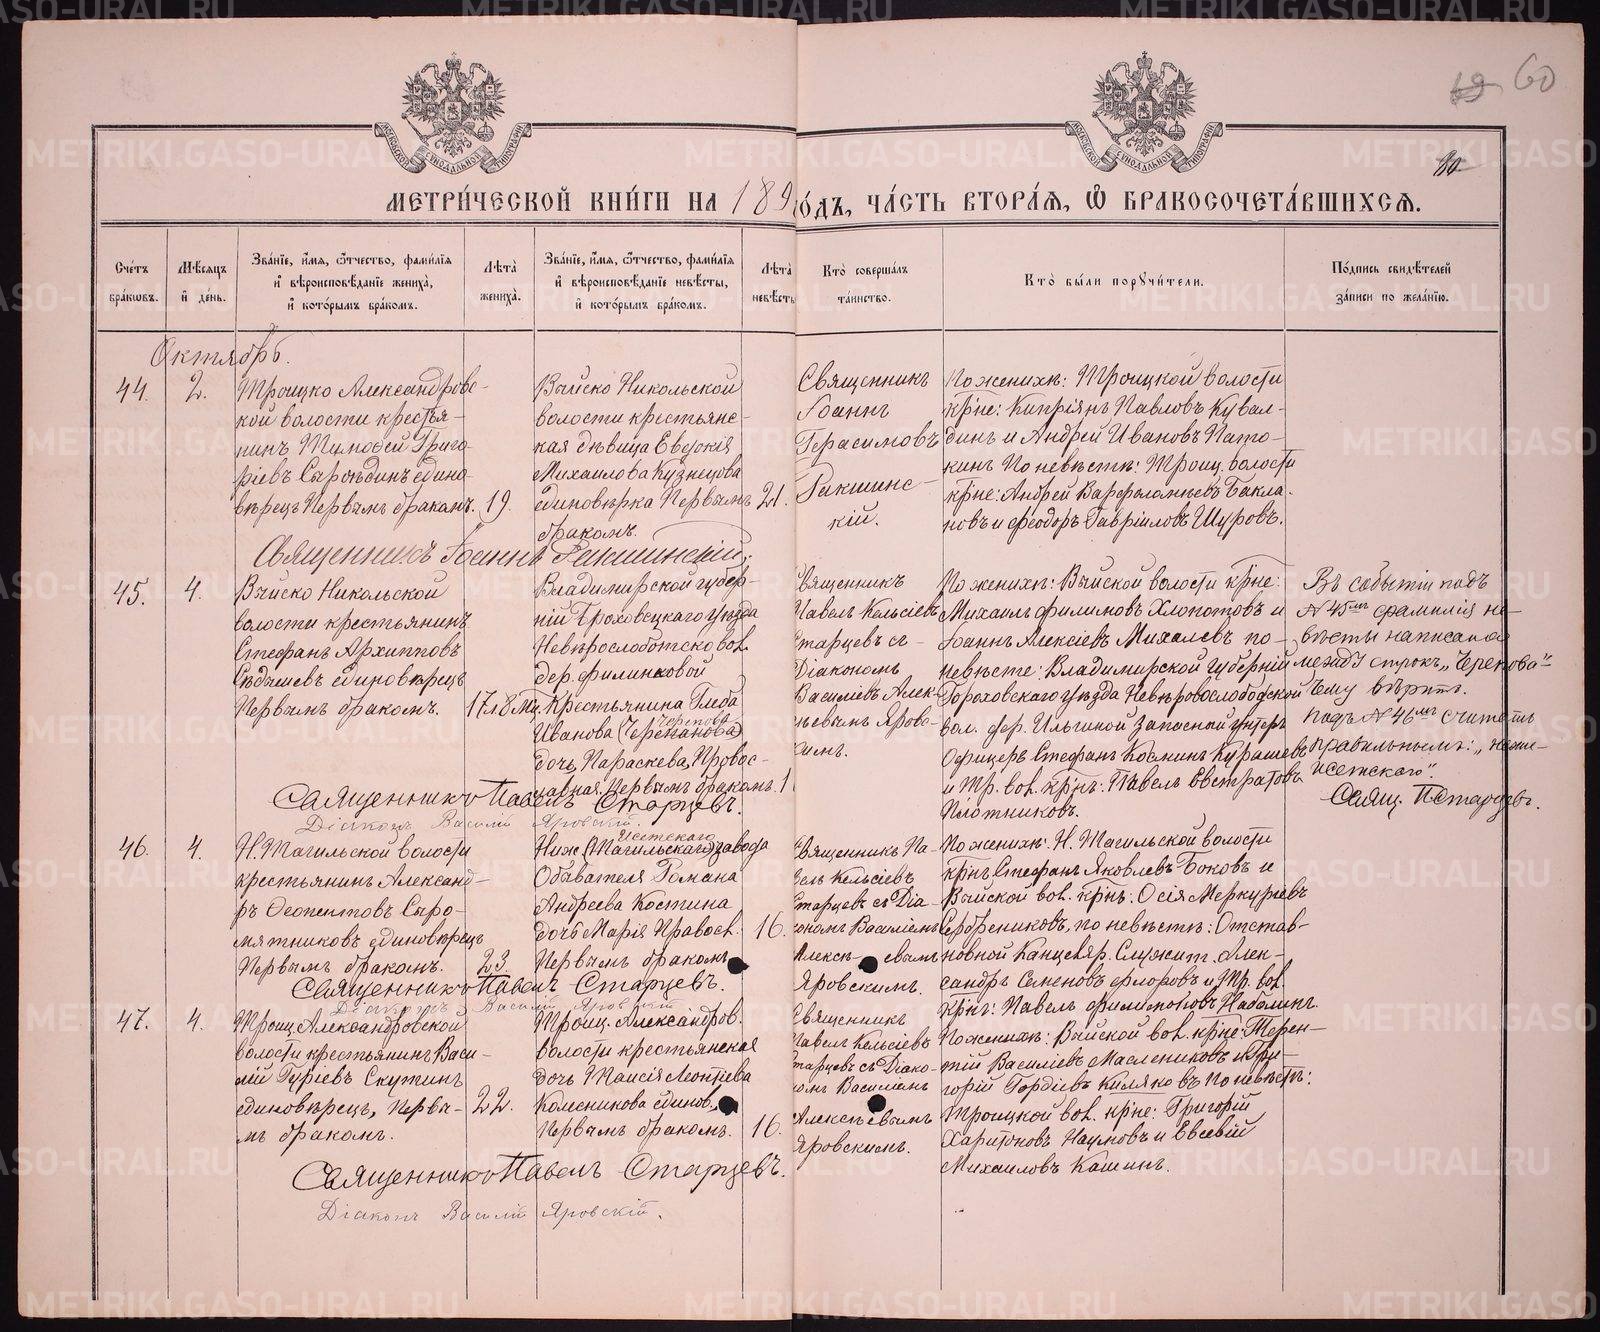 60
МЕТРИ́ЧЕСКОЙ КНИ́ГИ НА 189
О́ДЪ, ЧА́СТЬ ВТОРА́Я, Ѡ҆ БРАКОСОЧЕТА́ВШИХСЯ.
Сче́тъ бра́кωвъ.
Мѣ́сяцъ и҆ де́нь.
Зва́нїе, и҆́мя, ѻ҆́тчество, фами́лїя и҆ вѣроисповѣ́данїе жениха̀, и҆ кото́рымъ бра́комъ.
Лѣ́та̀ жениха̀.
Зва́нїе, и҆́мя, ѻ҆́тчество, фами́лїя и҆ вѣроисповѣ́данїе невѣ́сты, и҆ кото́рымъ бра́комъ.
Лѣ́та̀ невѣ́сты
Кто̀ соверша́лъ та́инство.
Кто̀ бы́ли поручи́тели.
По́дпись свидѣ́телей за́писи по жела́нїю.
Октябрь.
44.
2.
Троицко Александровс-
кой волости крестья-
нинъ Тимофей Григо-
ріевъ Сыропдинъ едино-
вѣрецъ Первымъ бракомъ.
19.
Выйско Никольской
волости крестьянс-
кая дѣвица Евдокія
Михаилова Кузнецова
единовѣрка Первымъ
бракомъ.
21.
Священникъ
Іоаннъ
Герасимовъ
Рикшинс-
кій.
По женихѣ: Троицкой волости
крⷭне: Кипріянъ Павловъ Кувал-
динъ и Андрей Ивановъ Пато-
кинъ По невѣстѣ: Троиц. волости
крⷭне: Андрей Варфоломеевъ Бакла-
новъ и Феодоръ Гавріиловъ Шуровъ.
Священникъ Іоаннъ Рикшинскій.
45.
4.
Выйско Никольской
волости крестьянинъ
Стефанъ Архипповъ
Сѣдышевъ единовѣрецъ
Первымъ бракомъ.
Владимирской губер-
ній Гроховецкаго уѣзда
Невѣрослободской вол.
дер. Филинковой
Крестьянина Глѣба
Черепова
Иванова (Черепанова)
дочь Параскева, Правос-
лавная Первымъ бракомъ.
Священникъ
Павелъ Кельсіевъ
Старцевъ съ
Діакономъ
Василіевъ Алек-
сѣевымъ Яровс-
кимъ.
По женихѣ: Выйской волости крⷭне:
Михаилъ Филимовъ Хлопотовъ и
Іоаннъ Алексіевъ Михалевъ по-
невѣсте: Владимирской губерній
Гороховскаго уѣзда Невѣрослободской
вол. дер. Ильиной запасной унтеръ
Офицеръ Стефанъ Косминъ Курашевъ
и Тр. вол. крⷭнъ: Павелъ Евстратовъ
Плотниковъ.
Въ событіи подъ
№ 45ᵐᵇ фамилія не-
вѣсты написаная
между строкъ „Черепова"
Чему вѣрить.
Подъ № 46ᵐᵇ считать
правильнымъ: „Нижне-
Исетскаго".
Свящ. П. Старцевъ.
Священникъ Павелъ Старцевъ.
Діаконъ Василій Яровскій.
46.
4.
Н. Тагильской волости
крестьянинъ Александ-
ръ Феопентовъ Сыро-
мятниковъ единовѣрецъ
Первымъ бракомъ.
23
Исетскаго
Ниж (Тагильскаго) завода
Обывателя Романа
Андреева Костина
дочь Марія Правосл.
Первымъ бракомъ.
16.
Священникъ Па-
велъ Кельсіевъ
Старцевъ съ Діа-
кономъ Василіемъ
Алексѣевымъ
Яровскимъ.
По женихѣ: Н. Тагильской волости
крⷭнъ Стефанъ Яковлевъ Боковъ и
Выйской вол. крⷭнъ: Осія Меркурьевъ
Серебрениковъ, по невѣстѣ: Отстав-
новной Канцеляр. Служит. Алек-
сандръ Семеновъ Флоровъ и Тр. вол.
крⷭнъ: Павелъ Филимоновъ Наболинъ
Священникъ Павелъ Старцевъ.
Діаконъ Василій Яровскій
47.
4.
Троиц. Александровской
волости крестьянинъ Васи-
лій Гуріевъ Скутинъ
единовѣрецъ, Первы-
мъ бракомъ.
22.
Троиц. Александров.
волости крестьянская
дочь Таисія Леонтіева
Колесникова единов.
Первымъ бракомъ.
16.
Священникъ
Павелъ Кельсіевъ
Старцевъ съ Діако-
номъ Василіемъ
Алексѣевымъ
Яровскимъ.
По женихѣ: Выйской вол. крⷭне: Терен-
тій Василіевъ Маслениковъ и Гри-
горій Гордѣевъ Киляковъ По невѣстѣ:
Троицкой вол. крⷭне: Григорій
Харитоновъ Наумовъ и Евсевій
Михаиловъ Кашинъ.
Священникъ Павелъ Старцевъ.
Діаконъ Василій Яровскій.
METRIKI.GASO-URAL.RU